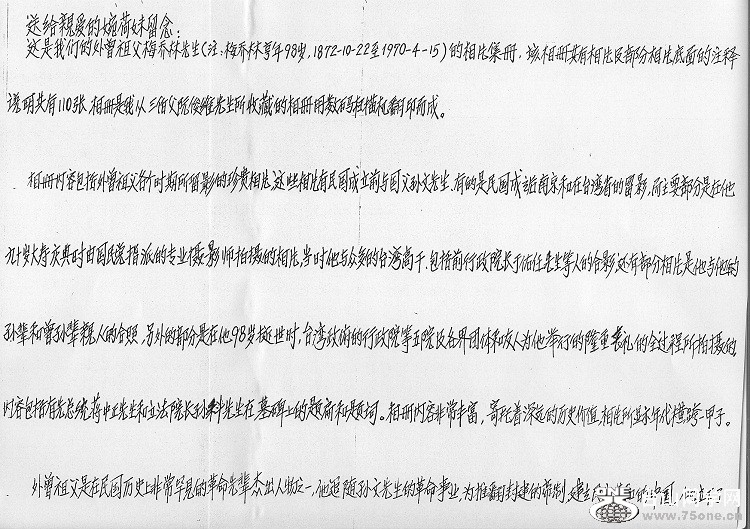 送给亲爱的婉荷妹留念：
这是我们的外曾祖父梅乔林先生(注：梅乔林享年98岁，1872-10-22至1970-4-15)的相片集册，该相册共有相片及部份相片底面的注释
说明共有110张，相册是我从三伯父阮俊雄先生所收藏的相册用数码扫描机翻印而成。
相册内容包括外曾祖父各个时期所留影的珍贵相片，这些相片有民国成立前与国父孙文先生，有的是民国成立后南京和在台湾省的留影，而主要部分是在他
九十岁大寿庆典时由国民党指派的专业摄影师拍摄的相片，当时他与众多的台湾高干，包括前行政院长于佑任先生等人的合影，还有部分相片是他与他的
孙辈和曾孙辈亲人的合照，另外的部分是在他98岁逝世时，台湾政府的行政院等五院及各界团体和友人为他举行的隆重丧礼的全过程所拍摄的，
内容包括有先总统蒋中正先生和立法院长孙科先生在墓碑上的题前和题词。相册内容非常丰富，寄托着深远的历史价值，相片所显示年代横跨一甲子。
外曾祖父是在民国历史上非常罕见的革命先辈杰出人物之一，他追随孙文先生的革命事业，为推翻封建的帝制，建
www.75one.cn